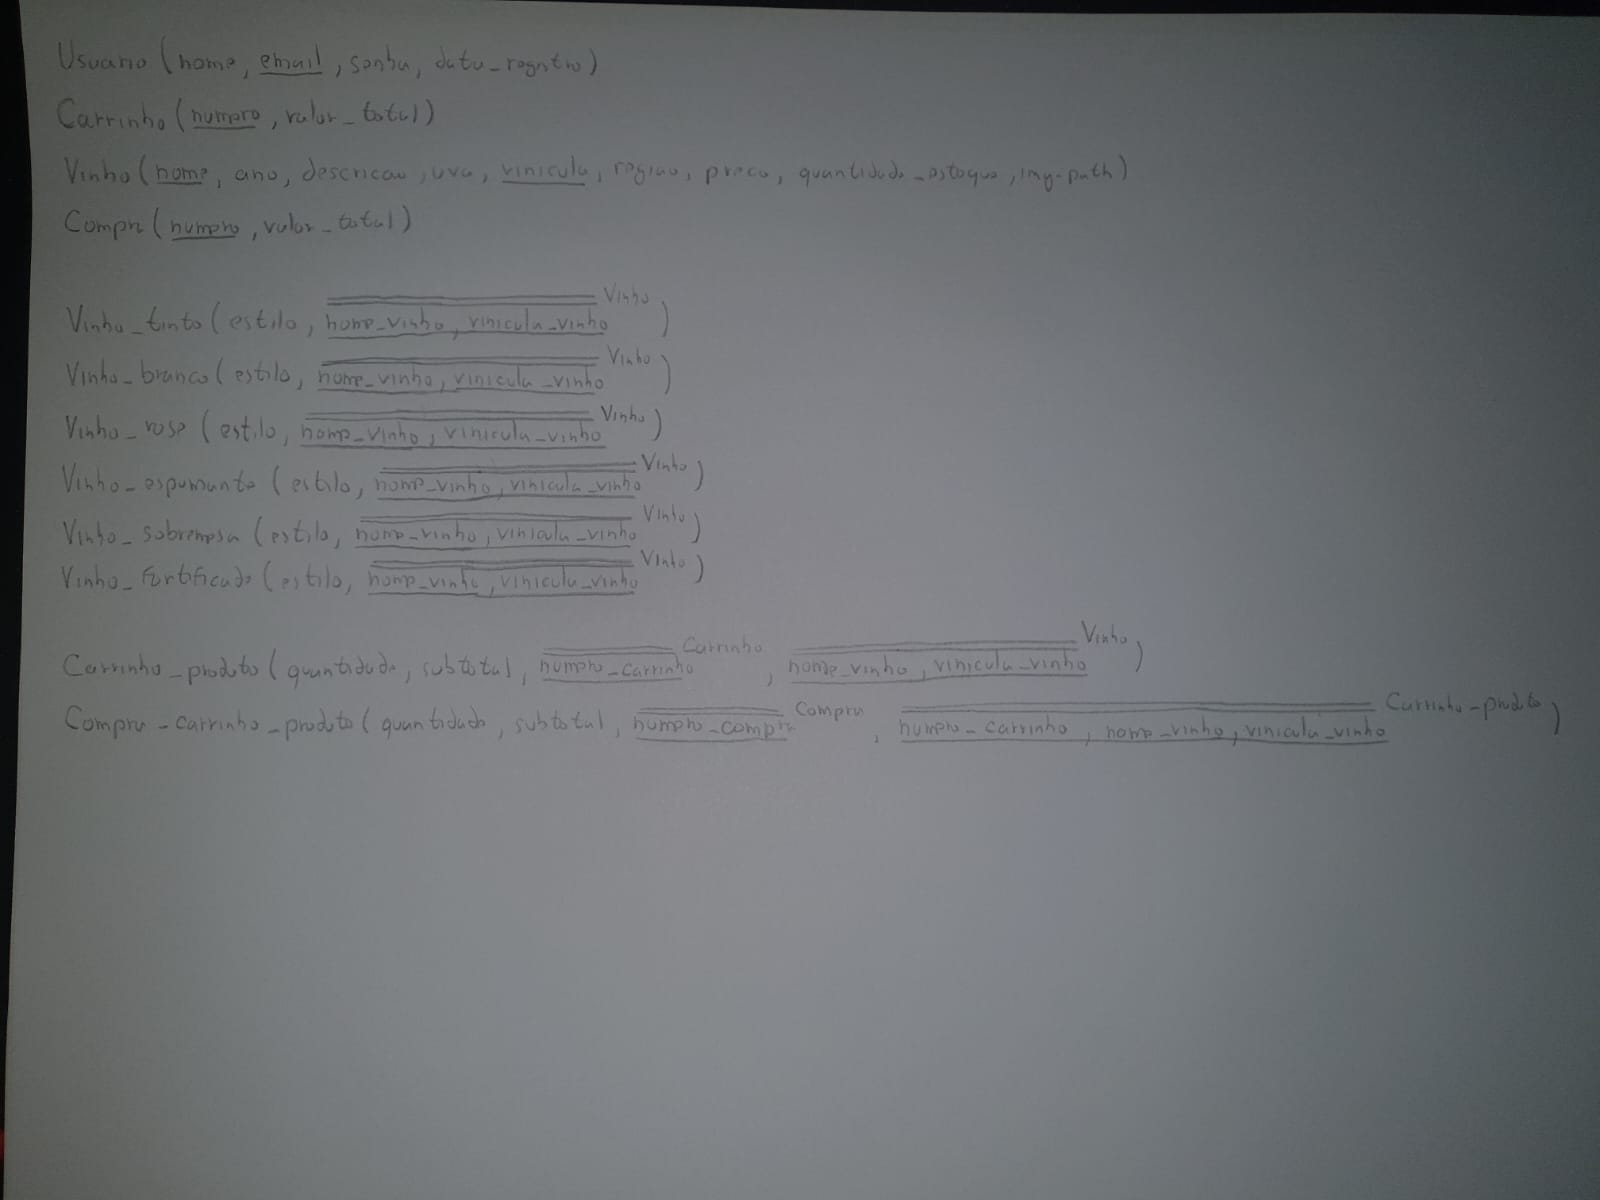 Usuario (nome, email, senha, data_registro)
Carrinho (numero, valor_total)
Vinho (nome, ano, descricao, uva, vinicula, regiao, preco, quantidade_estoque, img-path)
Compra (numero, valor_total)
Vinho_tinto (estilo, nome_vinho, vinicula_vinho Vinho)
Vinho_branco (estilo, nome_vinho, vinicula_vinho Vinho)
Vinho_rose (estilo, nome_vinho, vinicula_vinho Vinho)
Vinho_espumante (estilo, nome_vinho, vinicula_vinho Vinho)
Vinho_sobremesa (estilo, nome_vinho, vinicula_vinho Vinho)
Vinho_fortificado (estilo, nome_vinho, vinicula_vinho Vinho)
Carrinho_produto (quantidade, subtotal, numero_carrinho Carrinho, nome_vinho, vinicula_vinho Vinho)
Compra_carrinho_produto (quantidade, subtotal, numero_compra Compra, numero_carrinho, nome_vinho, vinicula_vinho Carrinho_produto)